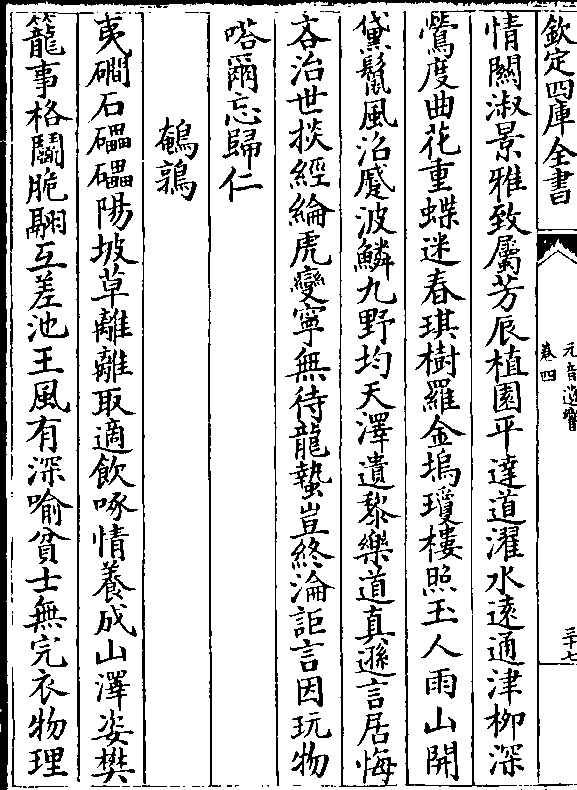 欽定四庫全書
元音遺響
卷四
三十七
情關淑景雅致屬芳辰植園平達道濯水遠通津柳深
鶯度曲花重蝶迷春琪樹羅金塢瓊樓照玉人雨山開
黛鬟風沼蹙波鱗九野均天澤遺黎樂道真遜言居悔
吝治世掞經綸虎變寧無待龍蟄豈終淪詎言因玩物
嗒爾忘歸仁
鵪鶉
夷磵石礧礧陽坡草離離取適飲啄情養成山澤姿樊
籠事格鬭脆翮互差池王風有深喻貧士無完衣物理